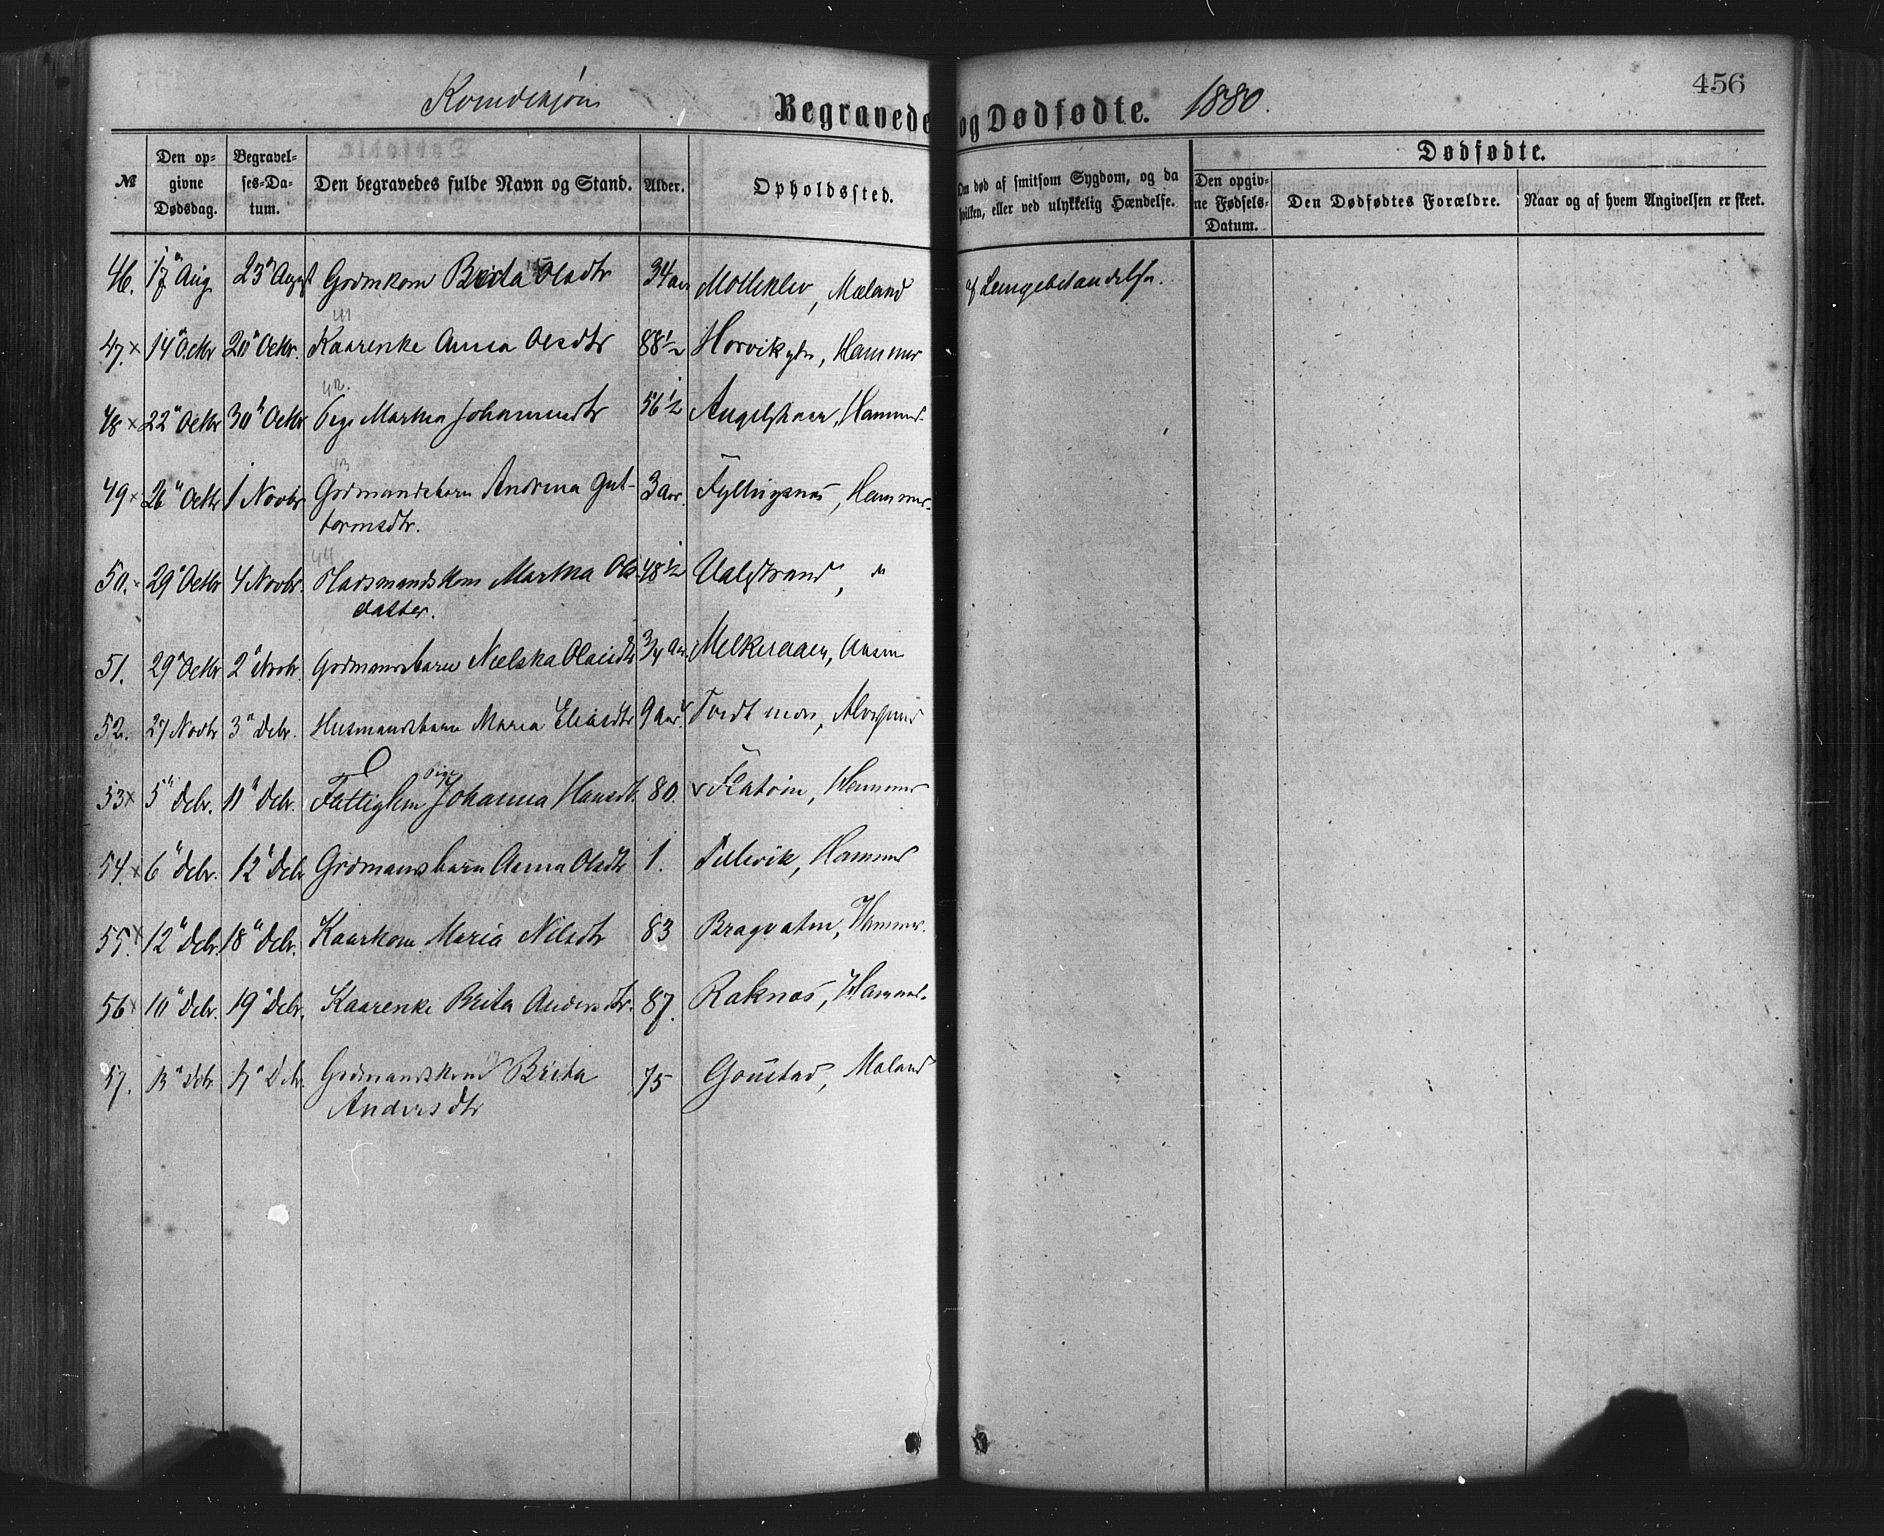 Kvindekjøn
Begravede og Dødfødte. 1880.
456
Dødfødte.
№
Den opgivne Dødsdag.
Begravelses-Datum.
Den begravedes fulde Navn og Stand.
Alder.
Opholdssted.
Om død af smitsom Sygdom, og da hvilken, eller ved ulykkelig Hændelse.
Den opgivne Fødsels-Datum.
Den Dødfødtes Forældre.
Naar og af hvem Angivelsen er skeet.
46. 17" Aug 23" August Grdmkone Brita Olsdtr 34 aar Mølleklev, Mæland af Lungebetændelse.
41
47. x 14" Octbr 20" Octbr. Kaarenke Anna Olsdtr 88 1/2 Horvik, Hammer
42.
48 x 22" Octbr 30" Octbr Pige Martha Johannesdtr 56 1/2 Angelskaar, Hammer
43
49 x 26" Octbr 1 Novbr Grdmandsbarn Andrina Gut-
tormsdtr. 3 aar. Fyllingsnæs, Hammer
44
50. x 29" Octbr 4 Novbr. Huusmandskone Martha Ols-
datter. 48 1/2 Valestrand, "
51. 29" Octbr 2" Novbr. Grdmandsbarn Nielska Olaidtr 3/4 Aar.
52. 27 Novbr 3" Debr. Husmandsbarn Maria Eliasdtr 9 Aar
53 x 5" Debr. 11" Debr. Fattiglem Pige Johanna Hansdt. 80. Flatøin, Hammer
54. x 6" Debr. 12" Debr Grdmansbarn Anna Olsdtr 1. Tellevik, Hammer
55. x 12" Debr. 18" Debr. Kaarkone Maria Nilsdtr 83 Bragvaten, Hammer.
56 x 10" Debr. 19" Debr. Kaarenke Brita Andersdtr. 87. Raknæs, Hammer.
57. 13" Debr. 17" Debr. Grdmandskone Brita
Andersdtr 75 Goustad, Mæland